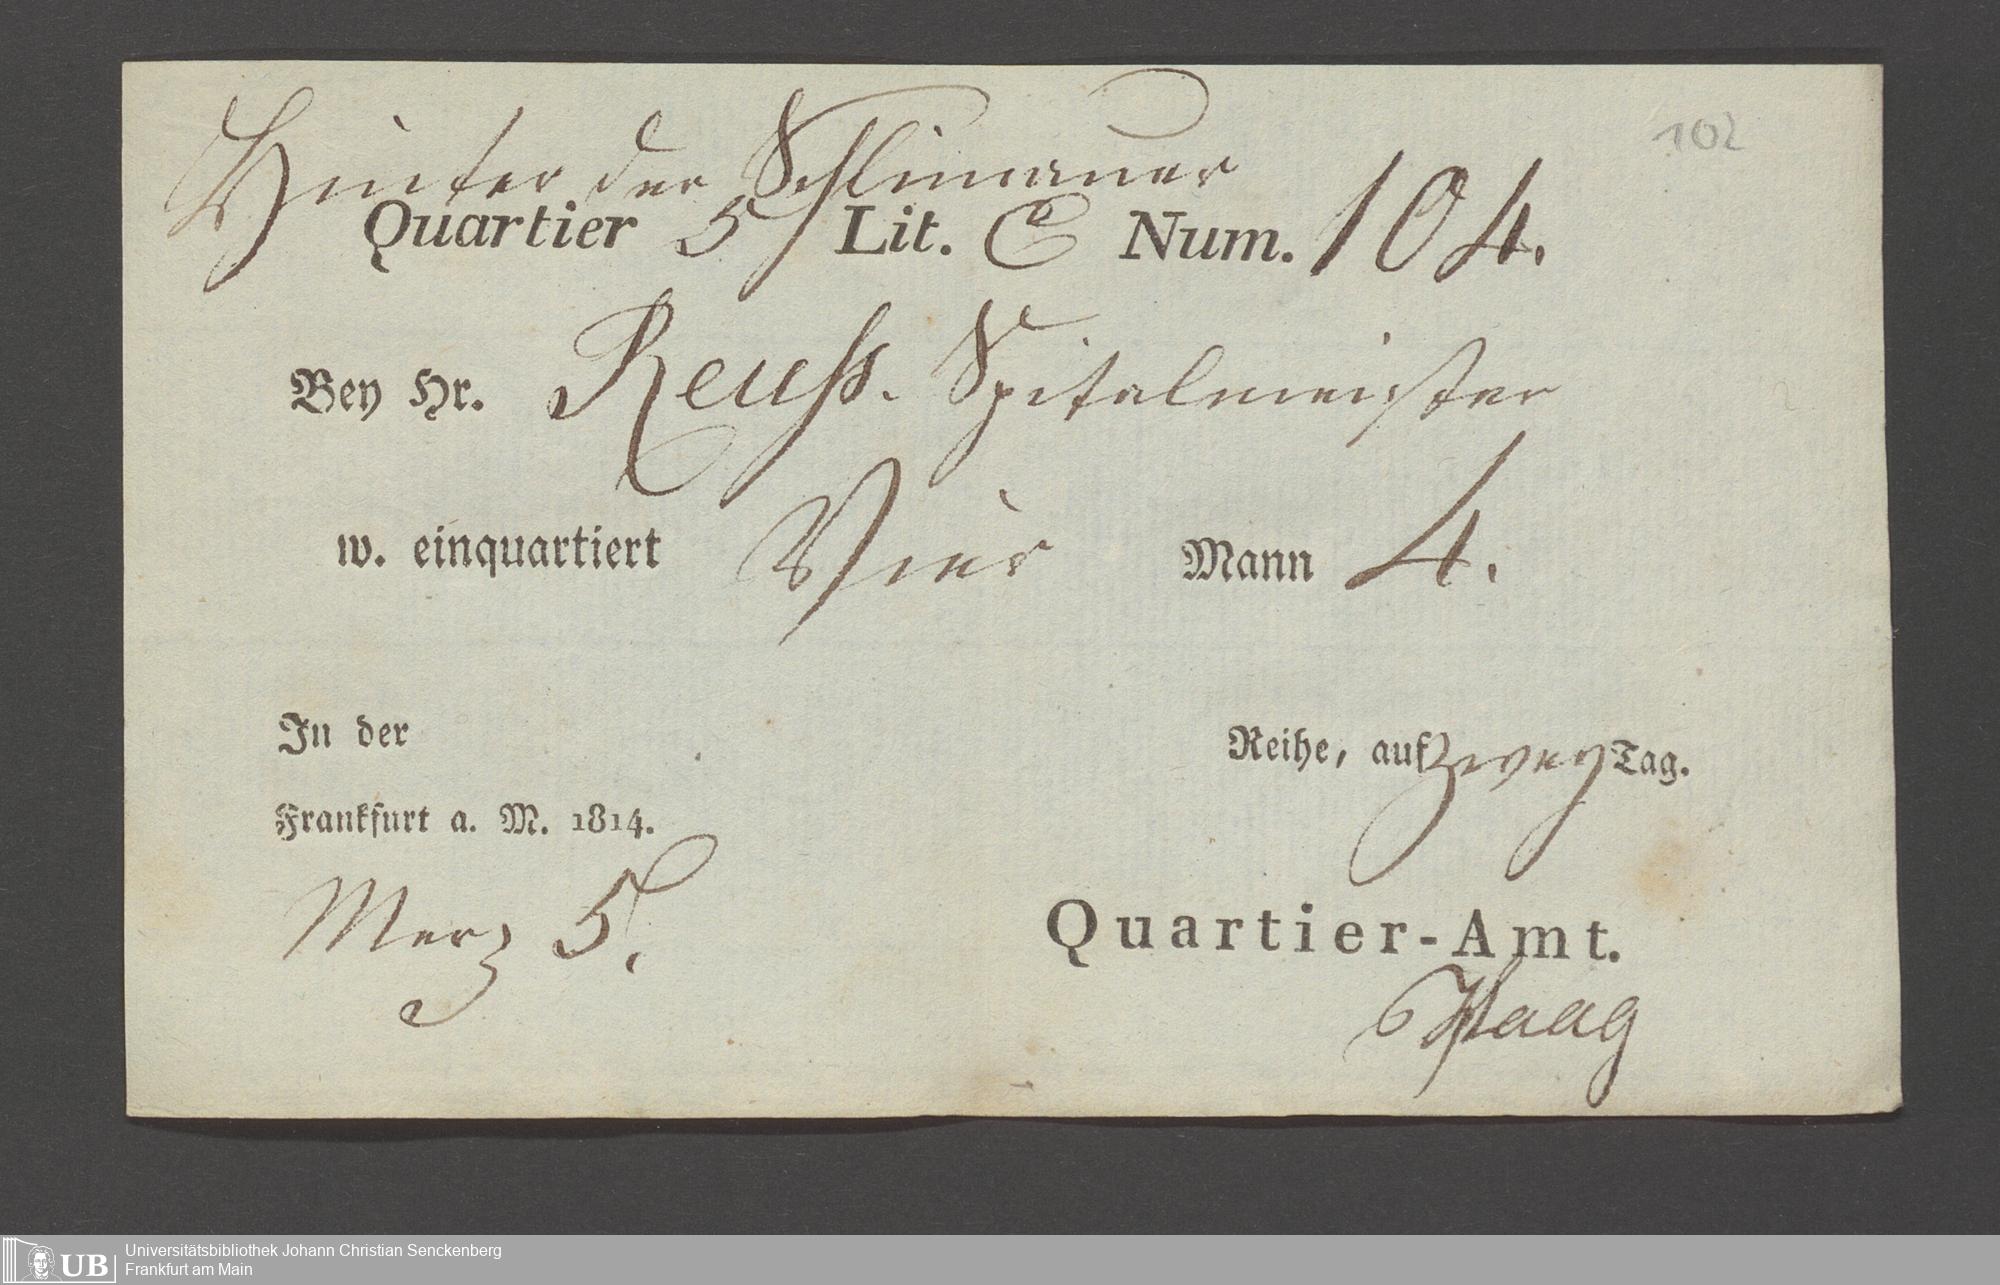 102
Hinter der Schlimauer
Quartier 5 Lit. C Num. 104.
Bey Hr. Reuß. Spitalmeister
w. einquartiert Vier Mann 4.
In der Reihe, auf zwey Tag.
Frankfurt a. M. 1814.
Merz 5.
Quartier-Amt.
Haag
UB Universitätsbibliothek Johann Christian Senckenberg
Frankfurt am Main